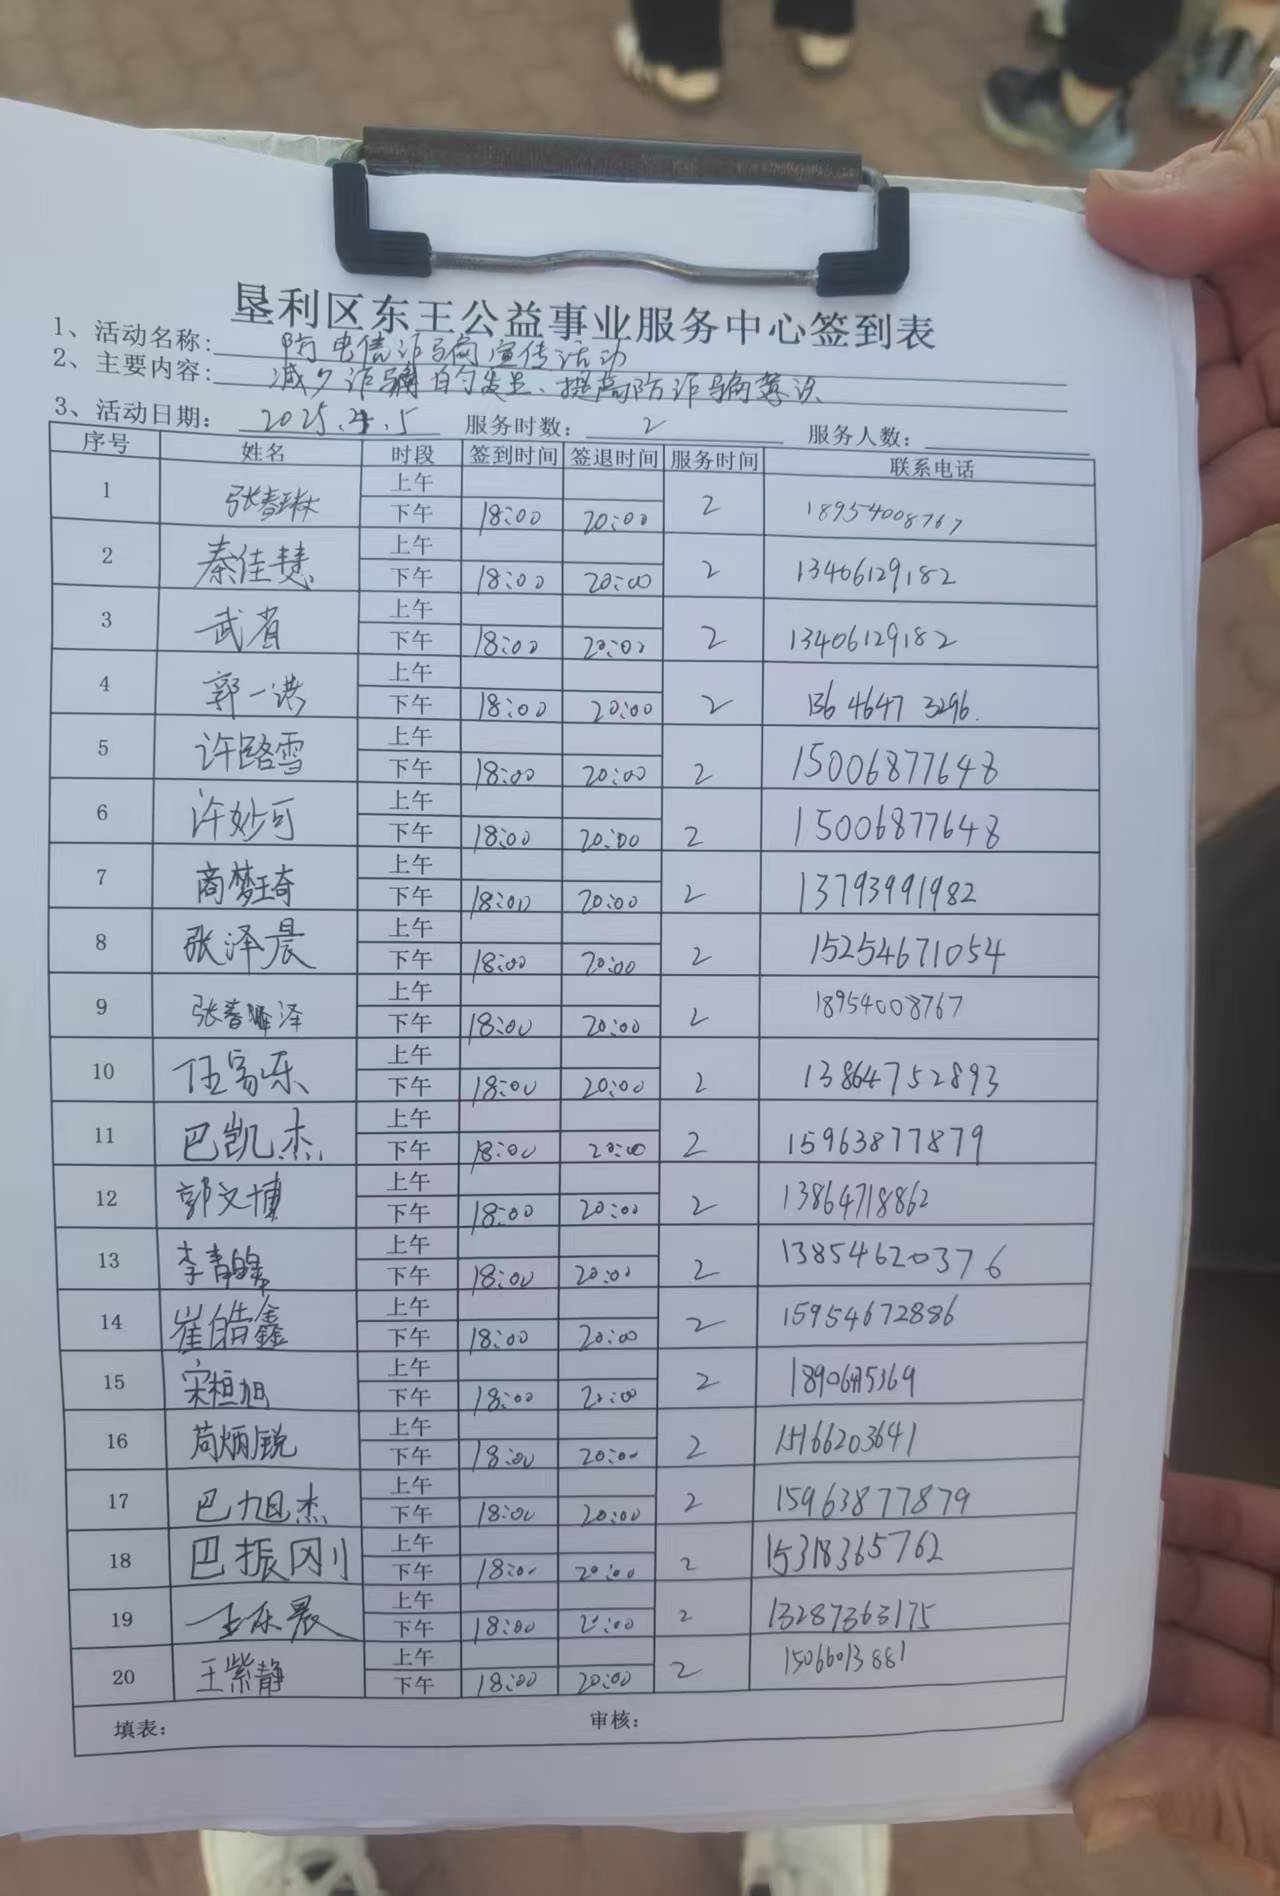 垦利区东王公益事业服务中心签到表
1、活动名称: 防电信诈骗宣传活动
2、主要内容: 减少诈骗的发生、提高防诈骗意识
3、活动日期: 2025.4.5 服务时数: 2 服务人数:
序号 姓名 时段 签到时间 签退时间 服务时间 联系电话
1 张春琳 上午 下午 18:00 20:00 2 18954008767
2 秦佳慧 上午 下午 18:00 20:00 2 13406129182
3 武省 上午 下午 18:00 20:00 2 13406129182
4 郭一洪 上午 下午 18:00 20:00 2 136 4647 3296.
5 许路雪 上午 下午 18:00 20:00 2 15006877648
6 许妙可 上午 下午 18:00 20:00 2 15006877648
7 商梦琦 上午 下午 18:00 20:00 2 13793991982
8 张泽晨 上午 下午 18:00 20:00 2 15254671054
9 张春泽 上午 下午 18:00 20:00 2 18954008767
10 任家乐 上午 下午 18:00 20:00 2 13864752893
11 巴凯杰 上午 下午 18:00 20:00 2 15963877879
12 郭文博 上午 下午 18:00 20:00 2 13864718862
13 李青 上午 下午 18:00 20:00 2 13854620376
14 崔皓鑫 上午 下午 18:00 20:00 2 15954672886
15 宋桓旭 上午 下午 18:00 20:00 2
16 苟炳锐 上午 下午 18:00 20:00 2 15166203641
17 巴旭杰 上午 下午 18:00 20:00 2 15963877879
18 巴振刚 上午 下午 18:00 20:00 2 15318365762
19 王东晨 上午 下午 18:00 20:00 2 13287363175
20 王紫静 上午 下午 18:00 20:00 2 15066013881
填表: 审核: